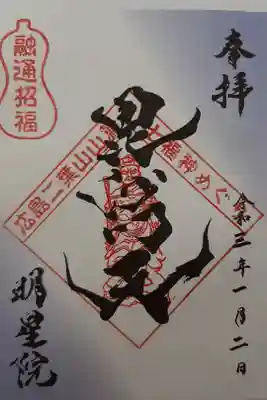 奉拝
融通招福
毘沙門天
広島二葉山山
七福神めぐ
令和三年一月二日
明星院